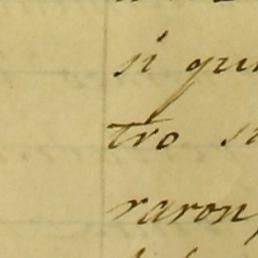 si qu
tro s
raron,